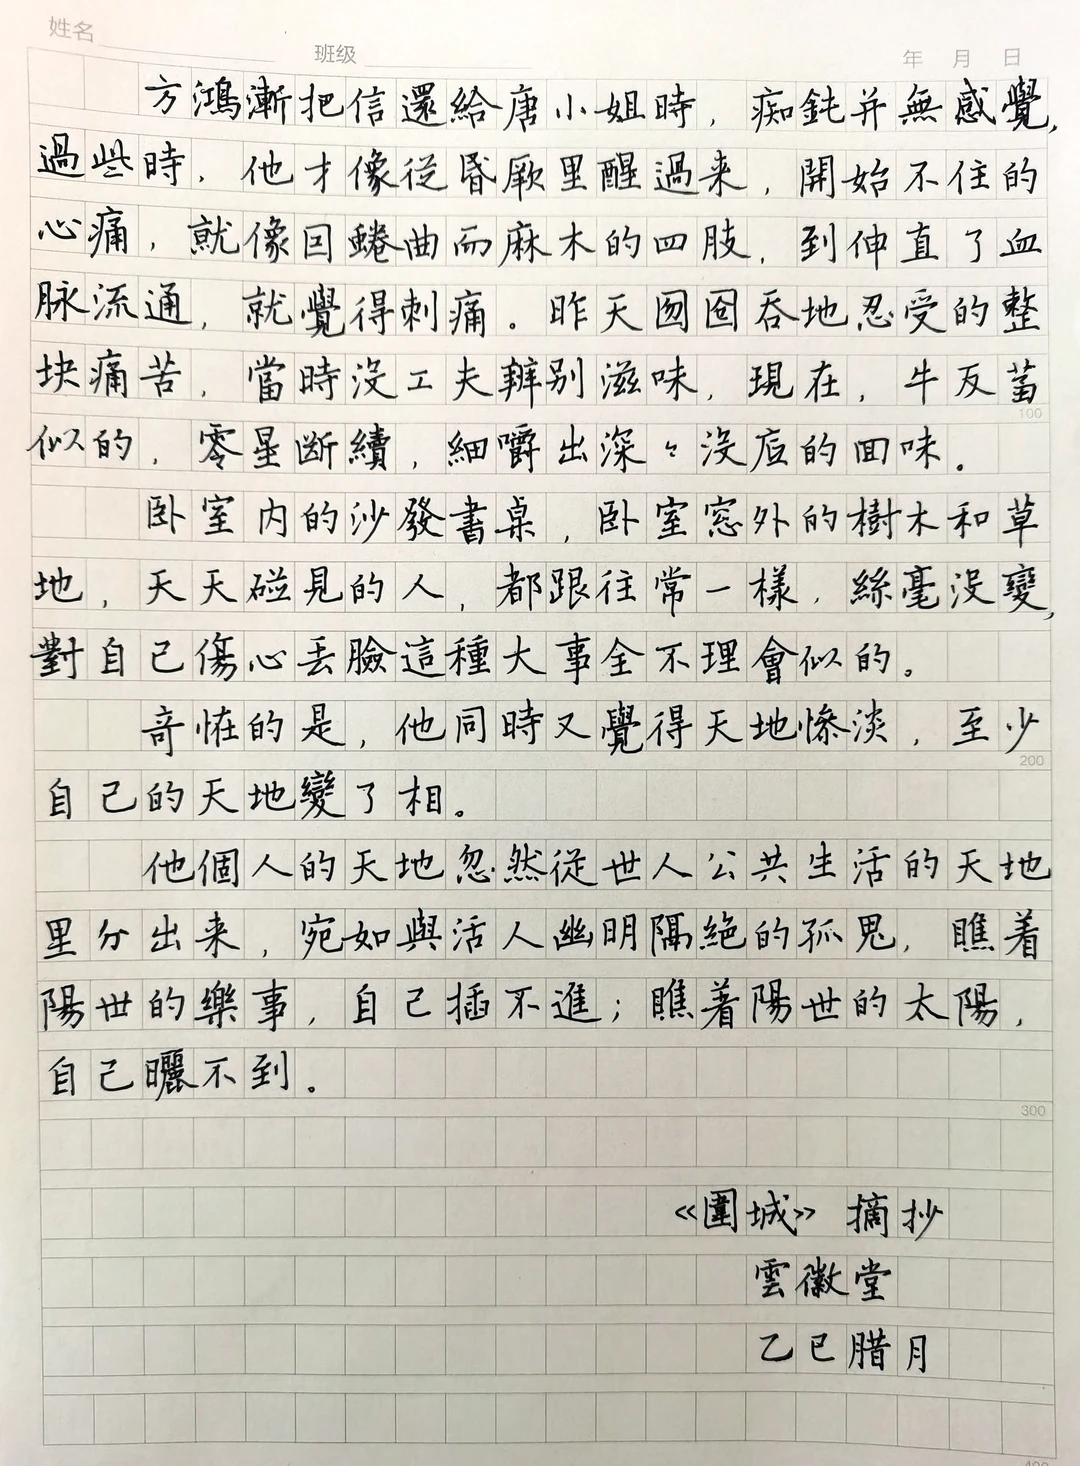 姓名 班级 年 月 日
方鴻漸把信還給唐小姐時，痴鈍并無感覺，
過些時，他才像從昏厥里醒過来，開始不住的
心痛，就像回蜷曲而麻木的四肢，到伸直了血
脉流通，就覺得刺痛。昨天囫囵吞地忍受的整
块痛苦，當時没工夫辨别滋味，現在，牛反蒭
100
似的，零星断續，細嚼出深々没底的回味。
卧室内的沙發書桌，卧室窓外的樹木和草
地，天天碰見的人，都跟往常一樣，絲毫没變，
對自己傷心丢臉這種大事全不理會似的。
奇怪的是，他同時又覺得天地慘淡，至少
200
自己的天地變了相。
他個人的天地忽然從世人公共生活的天地
里分出来，宛如與活人幽明隔絶的孤鬼，瞧着
陽世的樂事，自己插不進；瞧着陽世的太陽，
自己曬不到。
300
《圍城》摘抄
雲徽堂
乙巳腊月
400